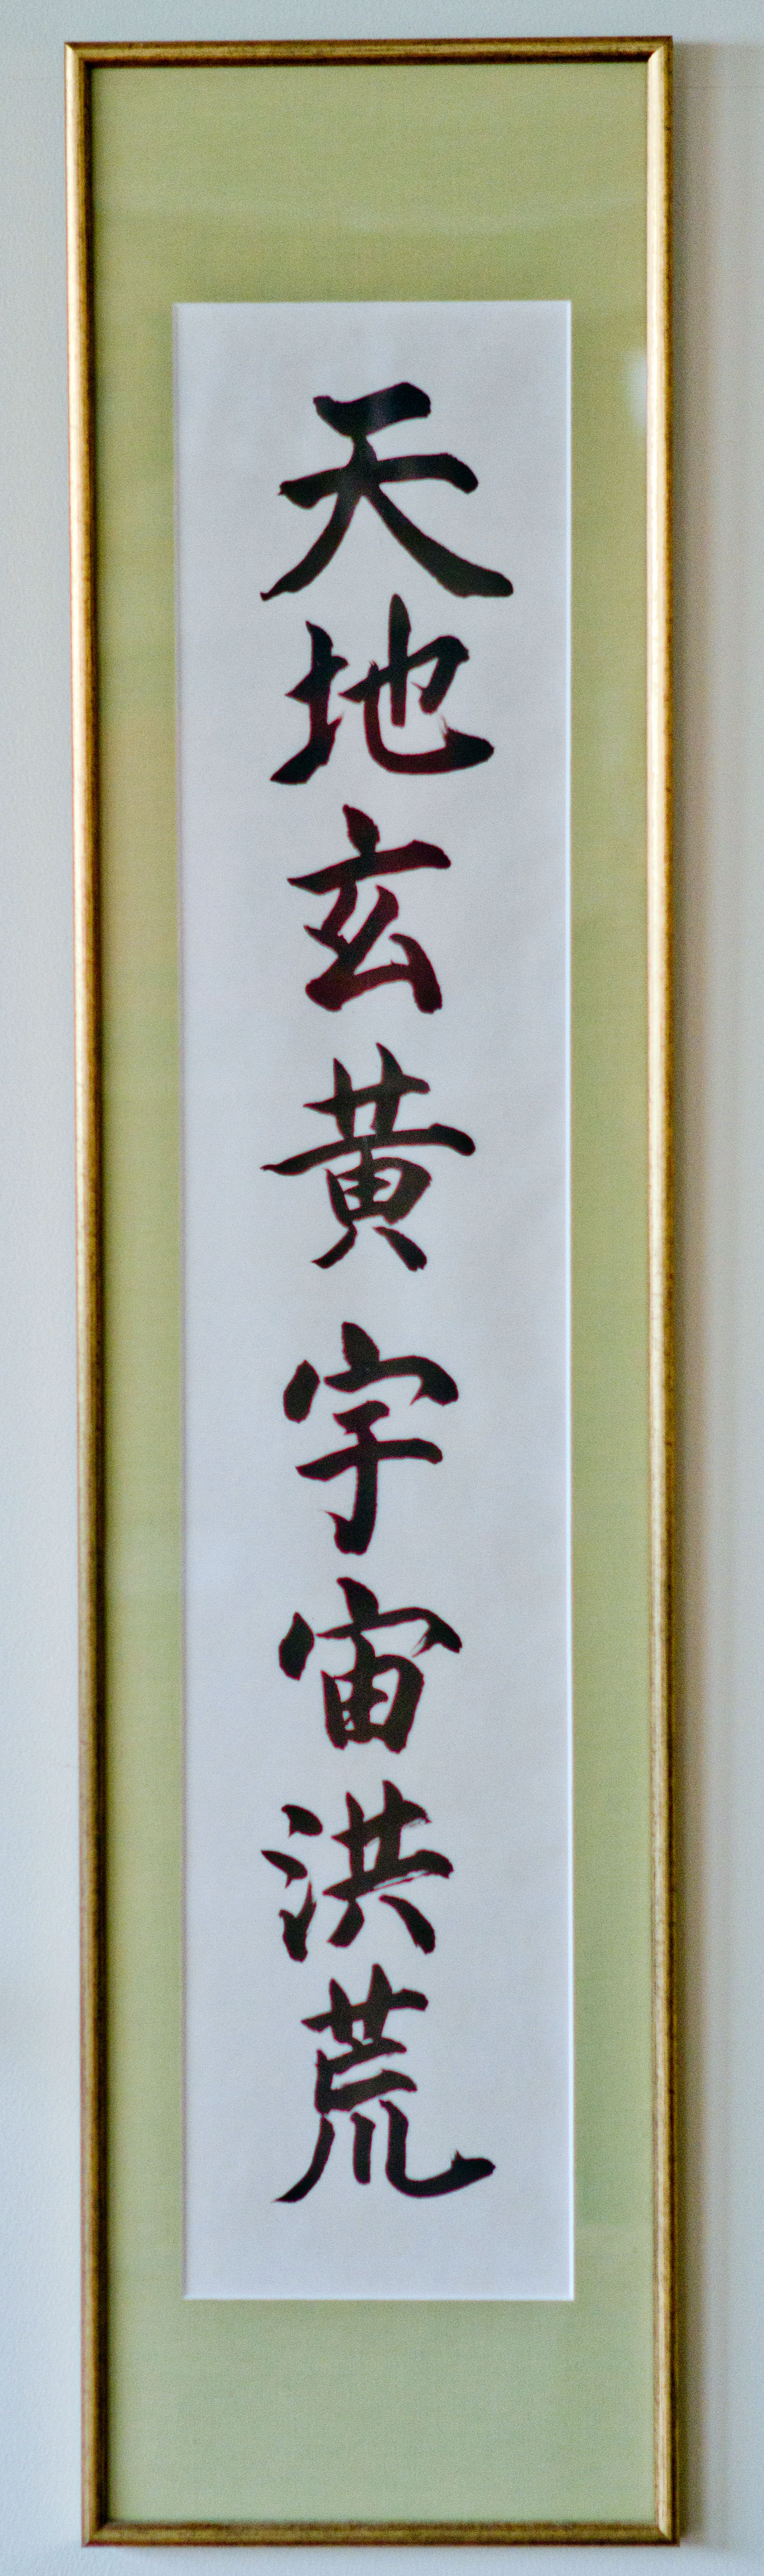 天地玄黄宇宙洪荒